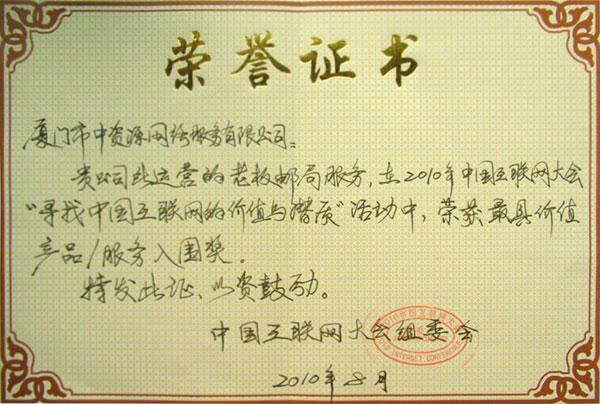 荣誉证书
厦门市中资源网络服务有限公司:
贵公司所运营的老板邮局服务,在2010年中国互联网大会
“寻找中国互联网的价值与潜质”活动中,荣获最具价值
产品/服务入围奖。
特发此证、以资鼓励。
中国互联网大会组委会
2010年8月